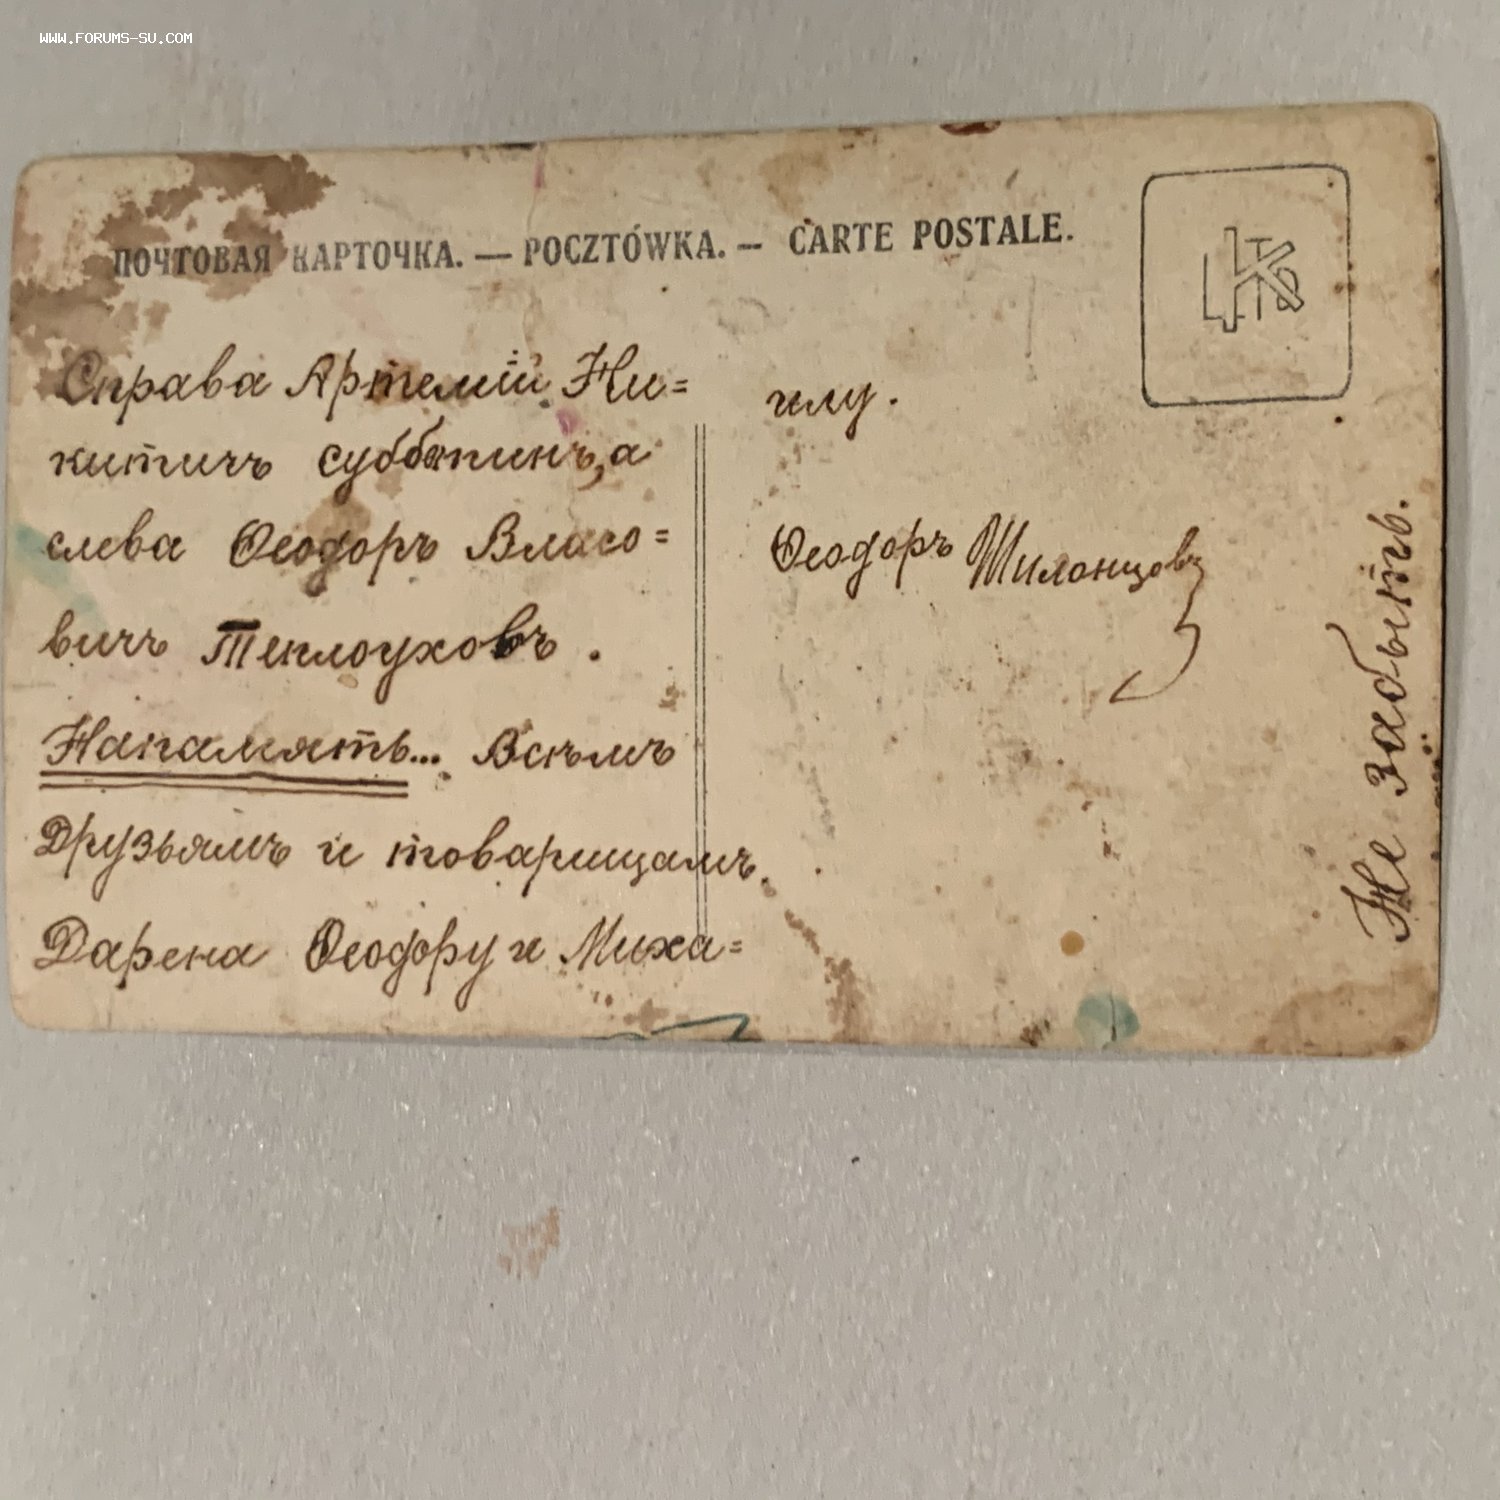 WWW.FORUMS-SU.COM
ПОЧТОВАЯ КАРТОЧКА. — POCZTÓWKA. — CARTE POSTALE.
Справа Артемій Ни=
китичъ субботинъ, а
слева Ѳеодоръ Власо=
вичъ Теплоуховъ.
Напамять... Всѣмъ
Друзьямъ и товарищамъ.
Дарена Ѳеодору и Миха=
илу.
Ѳеодоръ
Не забыть.